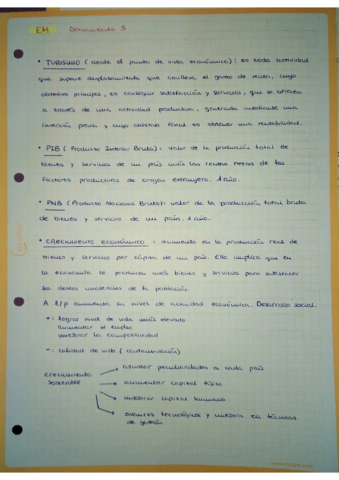 EM Documento 3
• TURISMO (desde el punto de vista económico): es toda actividad
que supone desplazamiento que conlleva el gasto de renta, cuyo
objetivo principal, es conseguir satisfacción y servicios, que se ofrecen
a través de una actividad productiva, generada mediante una
inversión previa y cuyo objetivo final es obtener una rentabilidad.
• PIB (Producto Interior Bruto): valor de la producción total de
bienes y servicios de un país más las rentas netas de los
factores productivos de origen extranjero. 1 año.
• PNB (Producto Nacional Bruto): valor de la producción total bruta
de bienes y servicios de un país. 1 año.
• CRECIMIENTO ECONÓMICO: aumento en la producción real de
bienes y servicios per cápita de un país. Ello implica que en
la economía se producen más bienes y servicios para satisfacer
los deseos materiales de la población.
A l/p aumenta su nivel de actividad económica. Desarrollo social.
+: lograr nivel de vida más elevado
aumentar el empleo
mejorar la competitividad
-: calidad de vida (contaminación)
crecimiento sostenible
→ ajustar peculiaridades a cada país
→ aumentar capital físico
→ mejorar capital humano
→ avances tecnológicos y mejora en técnicas
de gestión